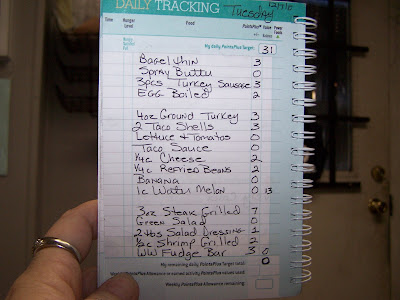 DAILY TRACKING
Tuesday
Time Hunger Level Food PointsPlus® Value
My Daily PointsPlus Target: 31
Bagel thin 3
Spray Butter 0
3pcs Turkey Sausage 3
EGG Boiled 2
4oz Ground Turkey 3
2 Taco Shells 3
Lettuce + Tomatos 0
Taco Sauce 0
1/4c Cheese 2
1/4c Refried Beans 2
Banana 0
1c Water Melon 0 13
3oz Steak Grilled 7
Green Salad 0
2 tbs Salad Dressing 1
1/2c Shrimp Grilled 2
WW Fudge Bar 3 0
My remaining daily PointsPlus Target total: 0
Weekly PointsPlus Allowance remaining: